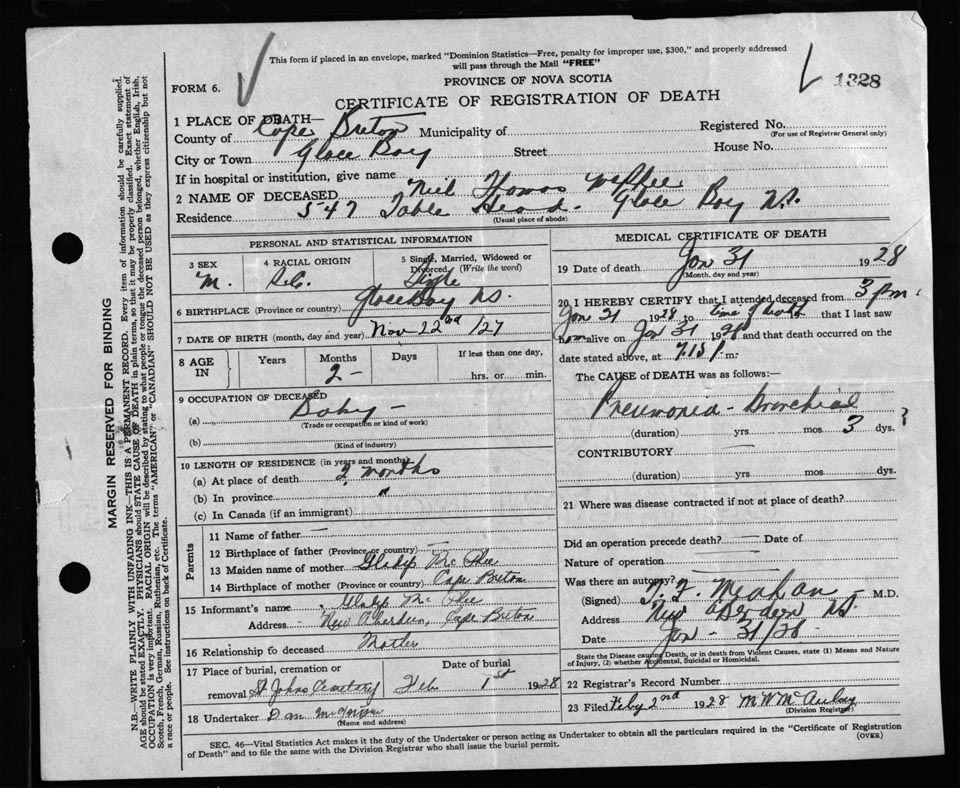 This form if placed in an envelope, marked "Dominion Statistics—Free, penalty for improper use, $300," and properly addressed
will pass through the Mail "FREE"
PROVINCE OF NOVA SCOTIA
FORM 6.
1328
CERTIFICATE OF REGISTRATION OF DEATH
1 PLACE OF DEATH—
County of Cape Breton Municipality of
Registered No.
(For use of Registrar General only)
City or Town Glace Bay Street House No.
If in hospital or institution, give name
2 NAME OF DECEASED Neil Thomas McPhee
Residence 547 Table Head - Glace Bay N.S.
(Usual place of abode)
PERSONAL AND STATISTICAL INFORMATION
3 SEX M.
4 RACIAL ORIGIN
5 Single, Married, Widowed or
Divorced (Write the word)
Single
6 BIRTHPLACE (Province or country) Glace Bay N.S.
7 DATE OF BIRTH (month, day and year) Nov 22nd /27
8 AGE IN Years Months 2 - Days If less than one day,
hrs. or min.
9 OCCUPATION OF DECEASED
(a) Baby -
(Trade or occupation or kind of work)
(b)
(Kind of industry)
10 LENGTH OF RESIDENCE (in years and months)
(a) At place of death 2 months
(b) In province "
(c) In Canada (if an immigrant)
Parents
11 Name of father —
12 Birthplace of father (Province or country) —
13 Maiden name of mother Gladys Mc Phee
14 Birthplace of mother (Province or country) Cape Breton
15 Informant's name Gladys Mc Phee
Address New Aberdeen, Cape Breton
16 Relationship to deceased Mother
17 Place of burial, cremation or
removal St Johns Cemetery
Date of burial
Feb. 1st 1928
18 Undertaker Dan
(Name and address)
MEDICAL CERTIFICATE OF DEATH
19 Date of death Jan 31 1928
(Month, day and year)
20 I HEREBY CERTIFY that I attended deceased from 3 pm
Jan 31 1928 to time of death that I last saw
him alive on Jan 31 1928 and that death occurred on
date stated above, at 7.15 p. m.
The CAUSE of DEATH was as follows:—
Pneumonia - Bronchial
(duration) yrs mos 3 dys.
CONTRIBUTORY
(duration) yrs mos dys.
21 Where was disease contracted if not at place of death?
Did an operation precede death? — Date of
Nature of operation —
Was there an autopsy?
(Signed) Meahan M.D.
Address New Aberdeen N.S.
Date Jan - 31/28 -
State the Disease causing Death, or in death from Violent Causes, state (1) Means and Nature
of Injury, (2) whether Accidental, Suicidal or Homicidal.
22 Registrar's Record Number
23 Filed Feby 2nd 1928 M W McAulay
(Division Registrar)
SEC. 46—Vital Statistics Act makes it duty of the Undertaker or person acting as Undertaker to obtain all the particulars required in the "Certificate of Registration
of Death" and to file the same with the Division Registrar who shall issue the burial permit.
(OVER)
MARGIN RESERVED FOR BINDING
N.B.—WRITE PLAINLY WITH UNFADING INK—THIS IS A PERMANENT RECORD. Every item of information should be carefully supplied.
AGE should be stated EXACTLY. PHYSICIANS should STATE CAUSE OF DEATH in plain terms, so that it may be properly classified. Exact statement of
OCCUPATION is very important. RACIAL ORIGIN will be described by stating to what people or tongue the deceased person belonged, whether English, Irish,
Scotch, French, German, Russian, Ruthenian, etc. The terms "AMERICAN" or "CANADIAN" SHOULD NOT BE USED as they express citizenship but not
a race or people. See instructions on back of Certificate.